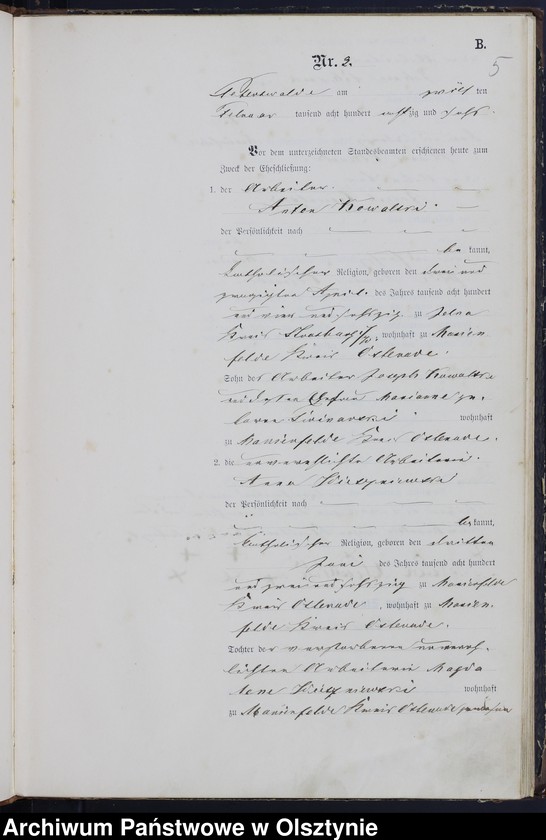 B.
5
Nr. 2.
Peterswalde am zwölf ten
Februar tausend acht hundert achtzig und sechs.
Vor dem unterzeichneten Standesbeamten erschienen heute zum
Zweck der Eheschließung:
1. der Arbeiter
Anton Kowalski
der Persönlichkeit nach
be kannt,
katholischer Religion, geboren den drei und
zwanzigsten April des Jahres tausend acht hundert
vier und sechszig zu
Kreis Strasburg, wohnhaft zu Marien
felde Kreis Osterode.
Sohn des Arbeiter Joseph Kowalski
und dessen Ehefrau Marianne ge-
borene wohnhaft
zu Marienfelde Kreis Osterode.
2. die unverehlichte Arbeiterin
Anna
der Persönlichkeit nach
be kannt,
katholischer Religion, geboren den dritten
Juni des Jahres tausend acht hundert
und zwei und sechszig zu Marienfelde
Kreis Osterode, wohnhaft zu Marien-
felde Kreis Osterode.
Tochter der verstorbenen unvereh-
lichten Arbeiterin Magda
lene wohnhaft
zu Marienfelde Kreis Osterode gewesen
Archiwum Państwowe w Olsztynie